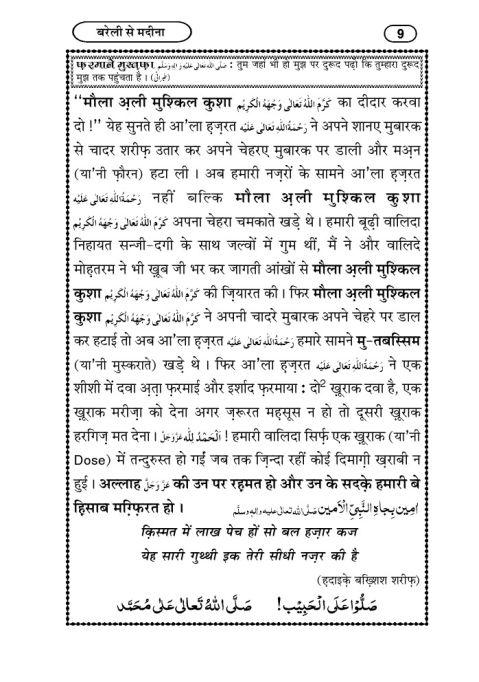 बरेली से मदीना
9
फ़रमाने मुस्तफ़ा صلى الله تعالى عليه واله وسلم : तुम जहां भी हो मुझ पर दुरूद पढ़ो कि तुम्हारा दुरूद
मुझ तक पहुंचता है । (طبرانی)
“मौला अ़ली मुश्किल कुशा كَرَّمَ اللهُ تَعَالٰى وَجْهَهُ الْكَرِيْم का दीदार करवा
दो !” येह सुनते ही आ'ला ह़ज़रत رَحْمَةُ اللهِ تَعَالٰى عَلَيْه ने अपने शानए मुबारक
से चादर शरीफ़ उतार कर अपने चेहरए मुबारक पर डाली और मअ़न
(या'नी फ़ौरन) हटा ली । अब हमारी नज़रों के सामने आ'ला ह़ज़रत
رَحْمَةُ اللهِ تَعَالٰى عَلَيْه नहीं बल्कि मौला अ़ली मुश्किल कुशा
كَرَّمَ اللهُ تَعَالٰى وَجْهَهُ الْكَرِيْم अपना चेहरा चमकाते खड़े थे । हमारी बूढ़ी वालिदा
निहायत सन्जी-दगी के साथ जल्वों में गुम थीं, मैं ने और वालिदे
मोह़तरम ने भी ख़ूब जी भर कर जागती आंखों से मौला अ़ली मुश्किल
कुशा كَرَّمَ اللهُ تَعَالٰى وَجْهَهُ الْكَرِيْم की ज़ियारत की । फिर मौला अ़ली मुश्किल
कुशा كَرَّمَ اللهُ تَعَالٰى وَجْهَهُ الْكَرِيْم ने अपनी चादरे मुबारक अपने चेहरे पर डाल
कर हटाई तो अब आ'ला ह़ज़रत رَحْمَةُ اللهِ تَعَالٰى عَلَيْه हमारे सामने मु-तबस्सिम
(या'नी मुस्कराते) खड़े थे । फिर आ'ला ह़ज़रत رَحْمَةُ اللهِ تَعَالٰى عَلَيْه ने एक
शीशी में दवा अ़त़ा फ़रमाई और इर्शाद फ़रमाया : दो2 ख़ूराक दवा है, एक
ख़ूराक मरीज़ा को देना अगर ज़रूरत महसूस न हो तो दूसरी ख़ूराक
हरगिज़ मत देना । اَلْحَمْدُ لِلّٰه عَزَّوَجَلَّ ! हमारी वालिदा सिर्फ़ एक ख़ूराक (या'नी
Dose) में तन्दुरुस्त हो गईं जब तक ज़िन्दा रहीं कोई दिमाग़ी ख़राबी न
हुई । अल्लाह عَزَّوَجَلَّ की उन पर रह़मत हो और उन के सदक़े हमारी बे
हिसाब मग़्फ़िरत हो । اٰمِين بِجَاهِ النَّبِيِّ الْاَمين صلى الله تعالى عليه واله وسلم
क़िस्मत में लाख पेच हों सो बल हज़ार कज
येह सारी गुथ्थी इक तेरी सीधी नज़र की है
(ह़दाइक़े बख़्शिश शरीफ़)
صَلُّوْا عَلَى الْحَبِيْب! صَلَّى اللهُ تَعَالٰى عَلٰى مُحَمَّد